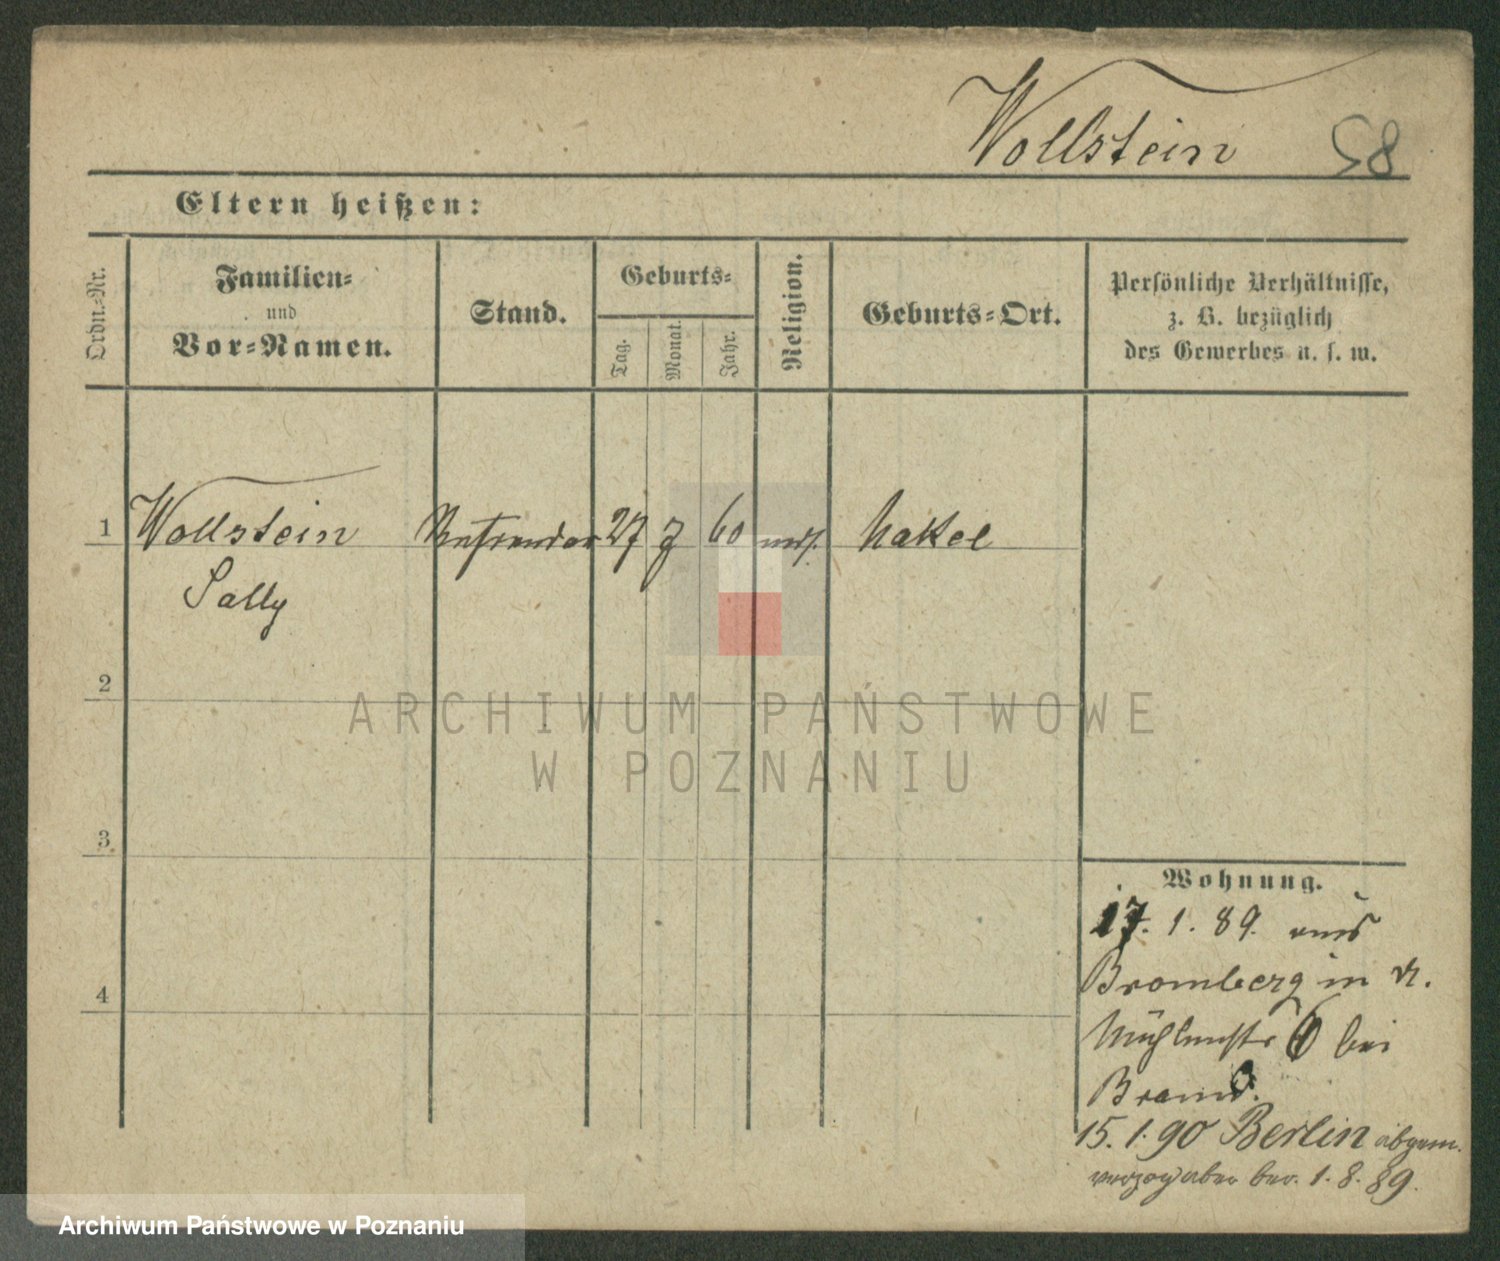 Wollstein 58
Eltern heißen:
Ordn.-Nr.
Familien-
und
Vor-Namen.
Stand.
Geburts-
Tag.
Monat.
Jahr.
Religion.
Geburts-Ort.
Persönliche Verhältnisse,
z. B. bezüglich
des Gewerbes u. s. w.
1 Wollstein Referendar 27 7 60 mos. Nakel
Sally
2
ARCHIWUM PAŃSTWOWE
W POZNANIU
3
4
Wohnung.
17. 1. 89. aus
Bromberg in
Mühlenstr 6 bei
15. 1. 90 Berlin abgem.
verzog aber 1. 8. 89.
Archiwum Państwowe w Poznaniu